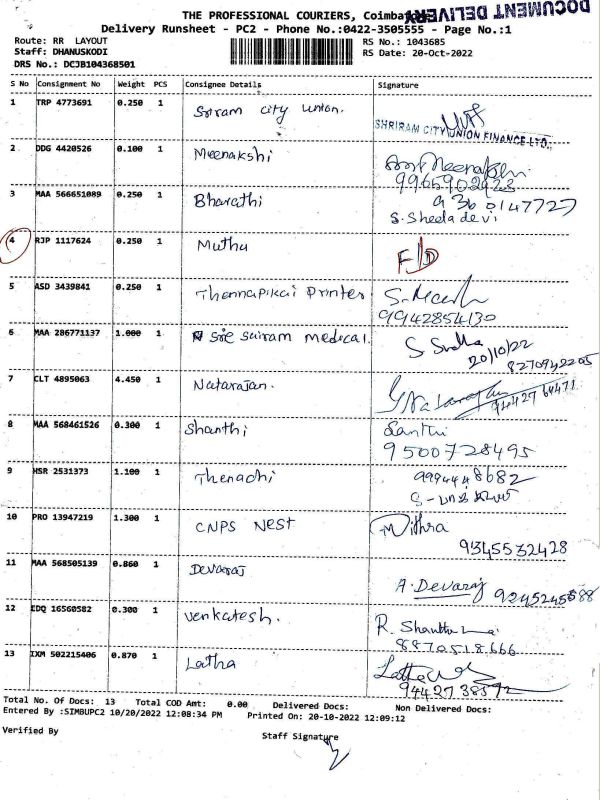 THE PROFESSIONAL COURIERS, Coimbatore
DOCUMENT DELIVERY
Delivery Runsheet - PC2 - Phone No.:0422-3505555 - Page No.:1
Route: RR LAYOUT
RS No.: 1043685
Staff: DHANUSKODI
RS Date: 20-Oct-2022
DRS No.: DCJB104368501
S No Consignment No Weight PCS Consignee Details Signature
1 TRP 4773691 0.250 1 Sriram city union.
SHRIRAM CITY UNION FINANCE LTD.,
2 DDG 4420526 0.100 1 Meenakshi
9965902923
3 MAA 566651089 0.250 1 Bharathi 9360147727
S. Sheeladevi
4 RJP 1117624 0.250 1 Mutha F/D
5 ASD 3439841 0.250 1 Thennapikai Printer
9942854130
6 MAA 286771137 1.000 1 sree sairam medical.
20/10/22
8270942205
7 CLT 4895063 4.450 1 Natarajan.
8 MAA 568461526 0.300 1 Shanthi Santhi
9500728495
9 HSR 2531373 1.100 1 Thenachi 9994448682
10 PRO 13947219 1.300 1 CNPS NEST Mithra
9345532428
11 MAA 568505139 0.860 1 Devaraj A. Devaraj
12 EDQ 16560582 0.300 1 Venkatesh. R.
8870518666
13 IXM 502215406 0.870 1 Latha Latha
Total No. Of Docs: 13 Total COD Amt: 0.00 Delivered Docs: Non Delivered Docs:
Entered By :SIMBUPC2 10/20/2022 12:08:34 PM Printed On: 20-10-2022 12:09:12
Verified By
Staff Signature